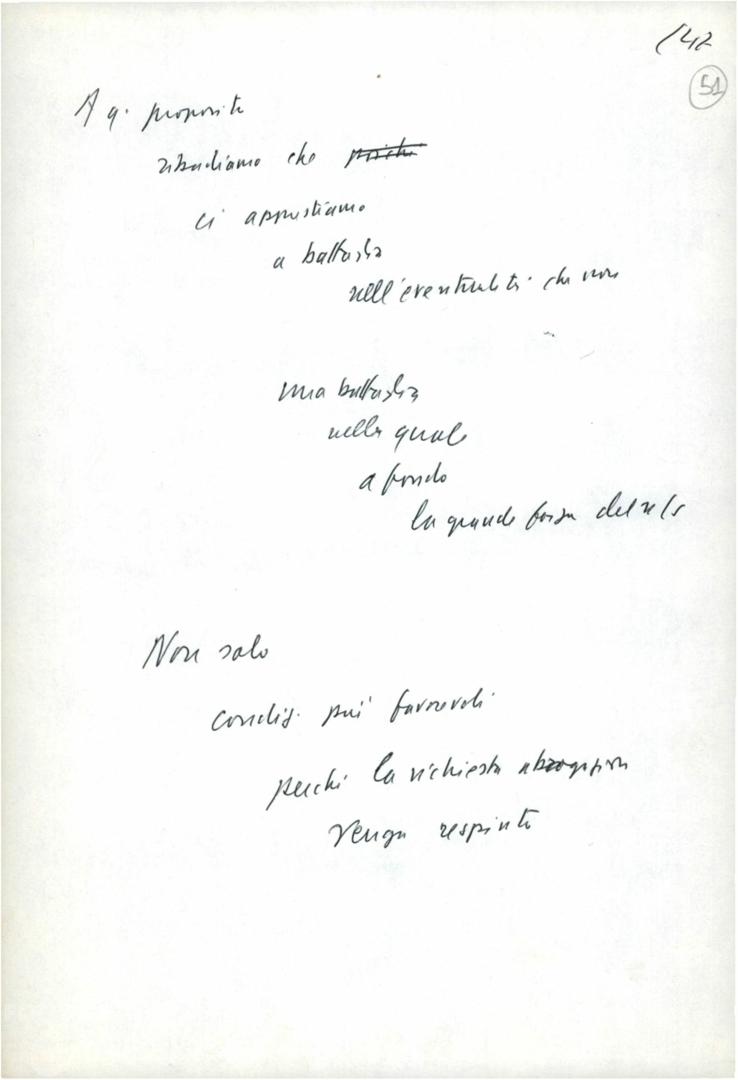 147
51
A q. proposito
ribadiamo che poichè
ci apprestiamo
a battaglia
nell'eventualità che non
una battaglia
nella quale
a fondo
la grande forza del
Non solo
condiz. più favorevoli
perchè la richiesta abrogazion
venga respinta